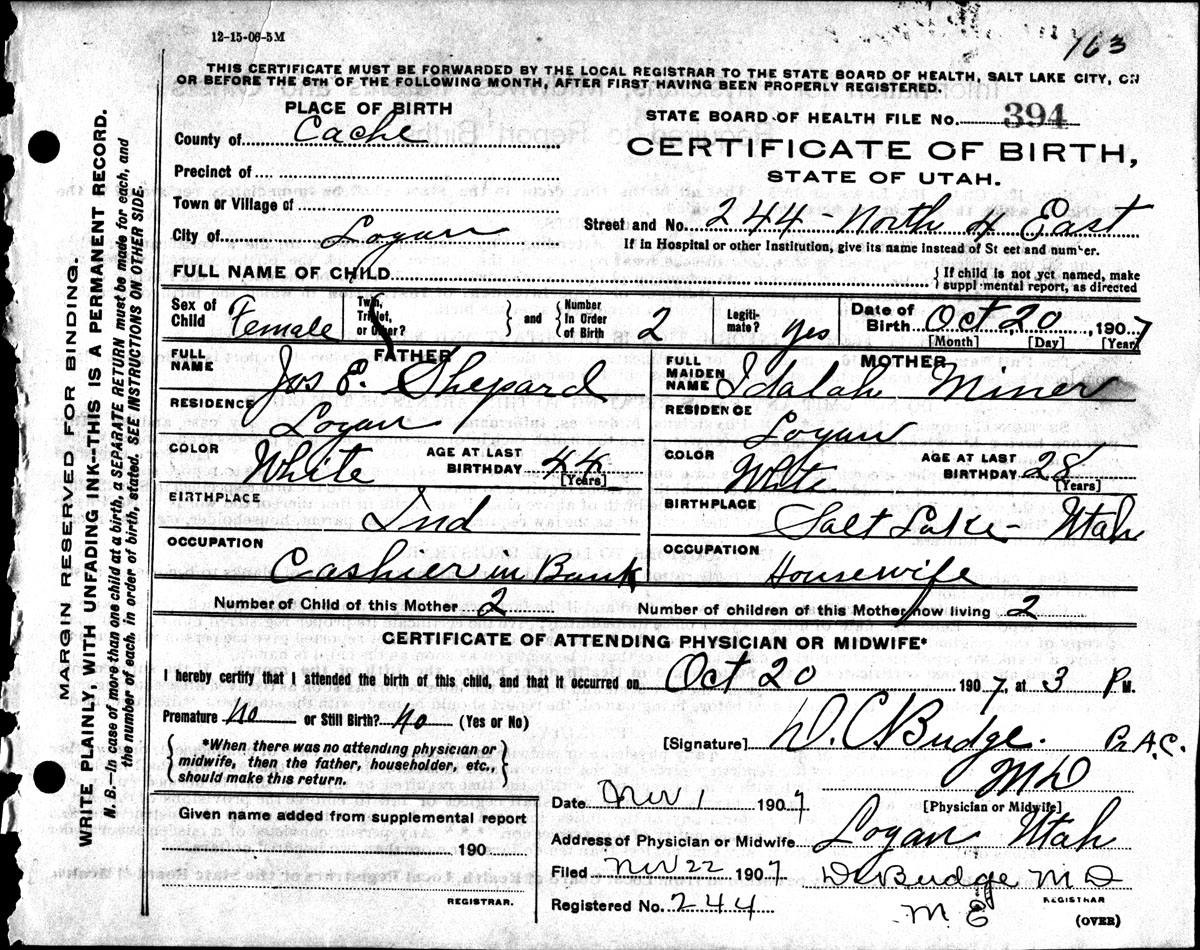 12-15-06-5M
163
THIS CERTIFICATE MUST BE FORWARDED BY THE LOCAL REGISTRAR TO THE STATE BOARD OF HEALTH, SALT LAKE CITY, ON
OR BEFORE THE 5TH OF THE FOLLOWING MONTH, AFTER FIRST HAVING BEEN PROPERLY REGISTERED.
MARGIN RESERVED FOR BINDING.
WRITE PLAINLY, WITH UNFADING INK--THIS IS A PERMANENT RECORD.
N. B.—In case of more than one child at a birth, a SEPARATE RETURN must be made for each, and
the number of each, in order of birth, stated. SEE INSTRUCTIONS ON OTHER SIDE.
PLACE OF BIRTH
County of Cache
Precinct of
Town or Village of
City of Logan
STATE BOARD OF HEALTH FILE NO. 394
CERTIFICATE OF BIRTH,
STATE OF UTAH.
Street and No. 244 - North 4 East
If in Hospital or other Institution, give its name instead of St eet and num er.
FULL NAME OF CHILD
{ If child is not yet named, make
suppl mental report, as directed
Sex of Child Female
Twin, Triplet, or Other?
} and { Number In Order of Birth 2
Legiti-mate? yes
Date of Birth Oct 20, 1907
[Month] [Day] [Year]
FATHER
FULL NAME Jos E. Shepard
RESIDENCE Logan
COLOR White AGE AT LAST BIRTHDAY 44
[Years]
BIRTHPLACE Ind
OCCUPATION Cashier in Bank
MOTHER
FULL MAIDEN NAME Idalah Miner
RESIDENCE Logan
COLOR White AGE AT LAST BIRTHDAY 28
[Years]
BIRTHPLACE Salt Lake - Utah
OCCUPATION Housewife
Number of Child of this Mother 2 Number of children of this Mother now living 2
CERTIFICATE OF ATTENDING PHYSICIAN OR MIDWIFE*
I hereby certify that I attended the birth of this child, and that it occurred on Oct 20 1907, at 3 P M.
Premature No or Still Birth? No (Yes or No)
{ *When there was no attending physician or
midwife, then the father, householder, etc.,
should make this return. }
[Signature] D. C. Budge.
M D
[Physician or Midwife]
Date Nov 1 1907
Address of Physician or Midwife Logan Utah
Given name added from supplemental report
190
REGISTRAR.
Filed Nov 22 1907 D C Budge M D
REGISTRAR
Registered No. 244
(OVER)